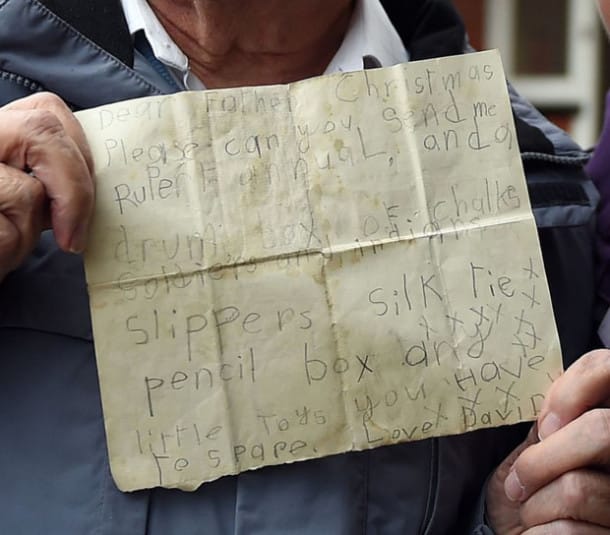 Dear Father Christmas
Please can you send me
Rupert annuaL, and a
drum, box of chalks
Soldiers and indians
slippers silk Tie x
x x x x x
pencil box any x x
little Toys you Have
to spare. Love x x x David